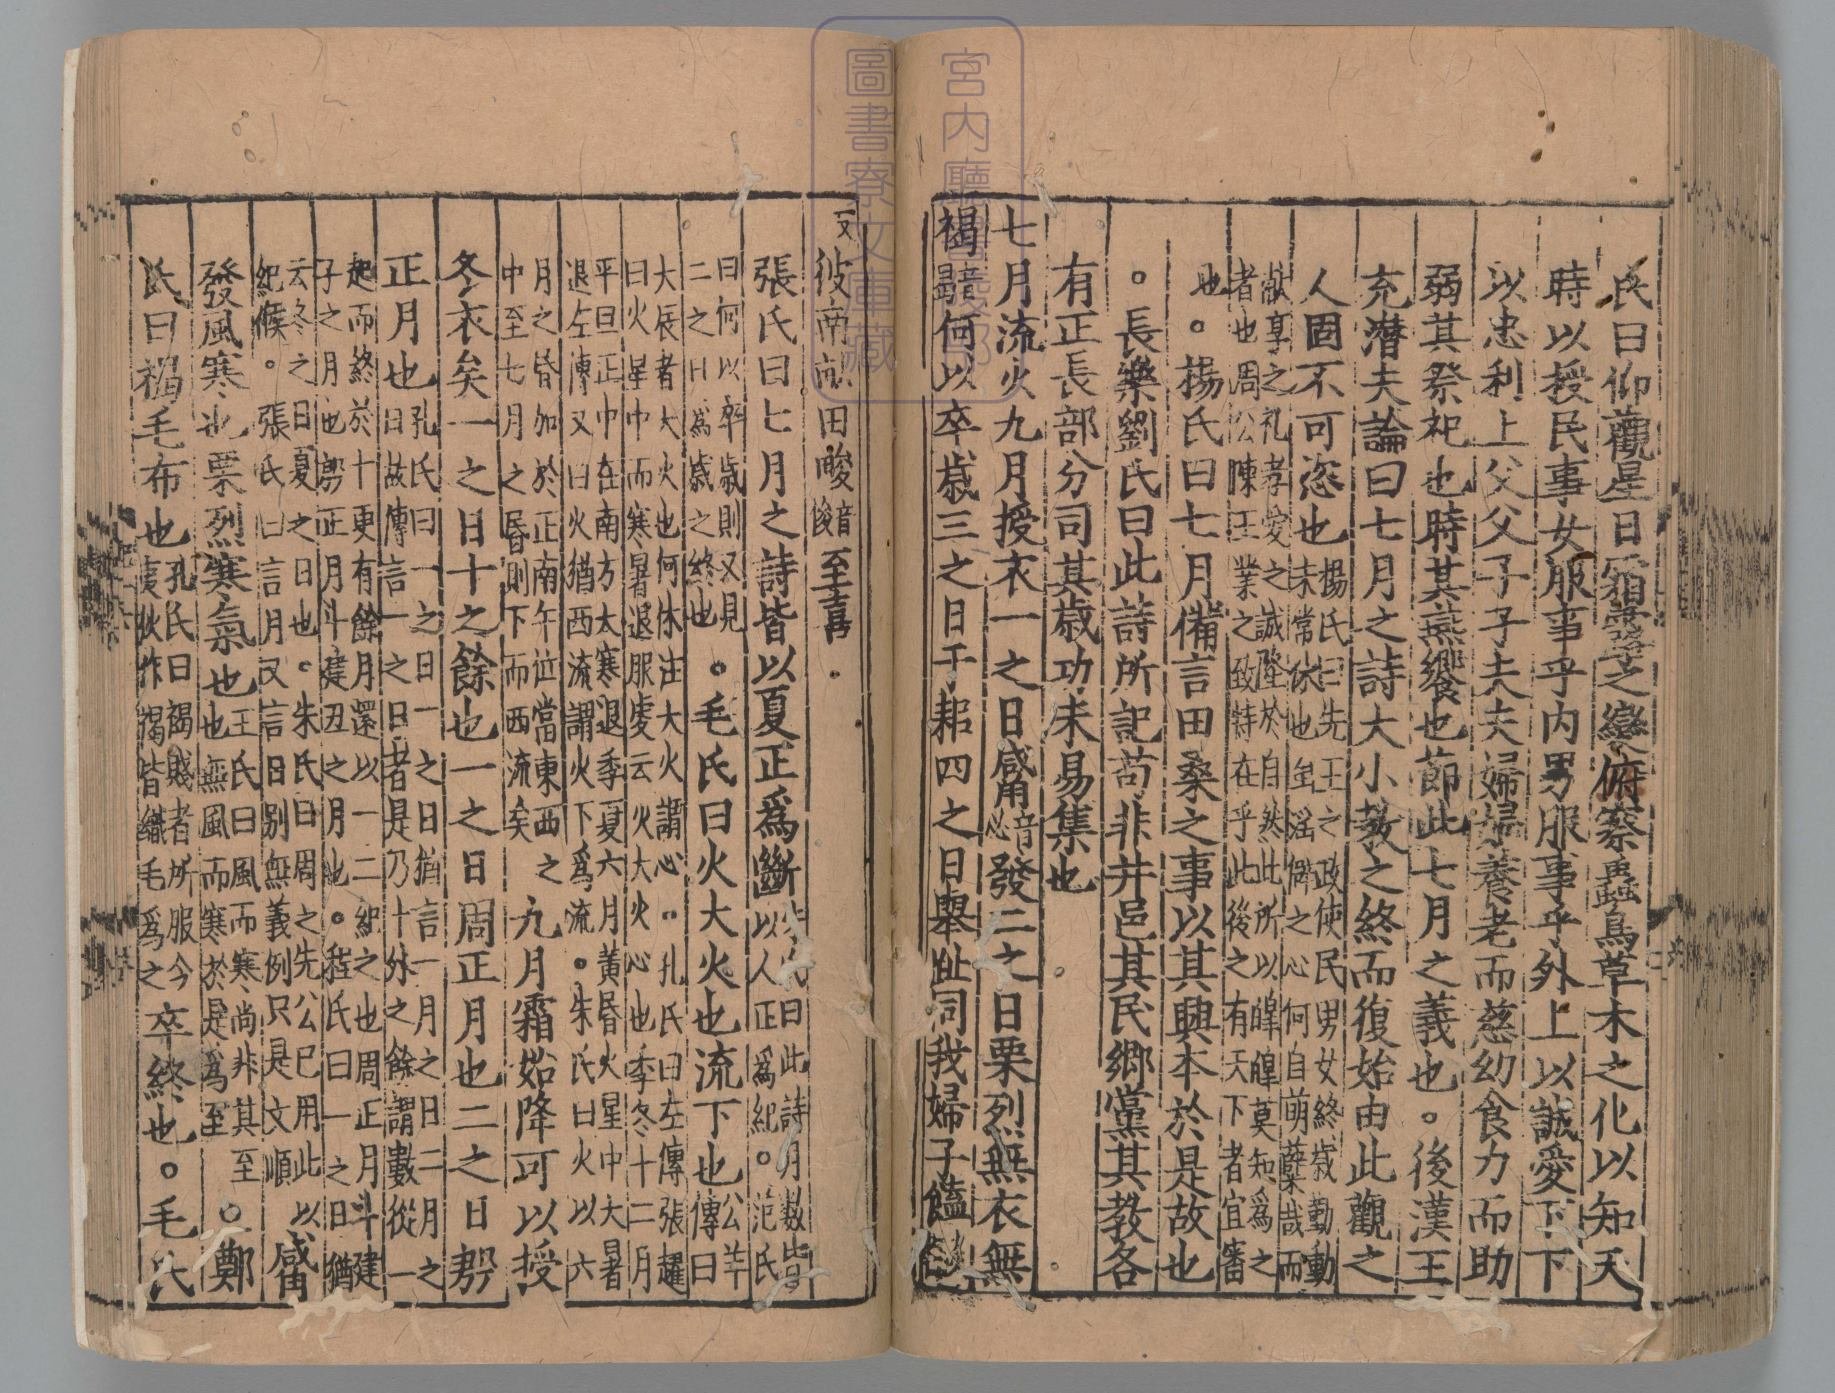 氏曰仰觀星日霜露之變俯察蟲鳥草木之化以知天
時以授民事女服事乎内男服事乎外上以誠愛下下
以忠利上父父子子夫夫婦婦養老而慈幼食力而助
弱其祭祀也時其燕饗也節此七月之義也。後漢王
充潛夫論曰七月之詩大小教之終而復始由此觀之
人固不可恣也
楊氏曰先王之政使民男女終歲勤動
未常休也
滛僻之心何自萌櫱哉而
獻享之礼孝愛之誠隆於自然此所以皥皥莫知爲之
者也周公陳王業之致特在乎此後之有天下者宜審
也。楊氏曰七月備言田桑之事以其興本於是故也
。長樂劉氏曰此詩所記茍非井邑其民鄉黨其教各
有正長部分司其歲功未易集也
七月流火九月授衣一之日觱音必發二之日栗烈無衣無
褐音曷何以卒歲三之日于耜四之日舉趾同我婦子饁
反彼南畝田畯音俊至喜
張氏曰七月之詩皆以夏正爲斷
曰此詩月數皆
以人正爲紀。范氏
曰何以卒歲則又見
二之日爲歲之終也
。毛氏曰火大火也流下也
公羊
傳曰
大辰者大火也何休注大火謂心。孔氏曰左傳張趯
曰火星中而寒暑退服虔云火大火心也季冬十二月
平旦正中在南方大寒退季夏六月黄昏火星中大暑
退左傳又曰火猶西流謂火下爲流。朱氏曰火以六
月之昏加於正南午位當東西之
中至七月之昏則下而西流矣
九月霜始降可以授
冬衣矣一之日十之餘也一之日周正月也二之日
正月也
孔氏曰一之日二之日猶言一月之日二月之
日故傳言一之日者是乃十外之餘謂數從一
起而終於十更有餘月還以一二紀之也周正月斗建
子之月也
正月斗建丑之月也。程氏曰一之日猶
云冬之日夏之日也。朱氏曰周之先公已用此以
紀候。張氏曰言月又言日别無義例只是文順
觱
發風寒也栗烈寒氣也
王氏曰風而寒尚非其至
也無風而寒於是爲至
。鄭
氏曰褐毛布也
孔氏曰褐賤者所服今
夷狄作褐皆織毛爲之
卒終也。毛氏
宮内廳書陵部
圖書寮文庫藏